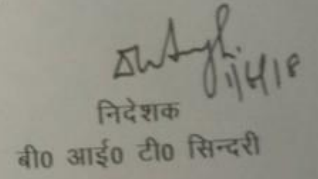 1/4/18
निदेशक
बी0 आई0 टी0 सिन्दरी